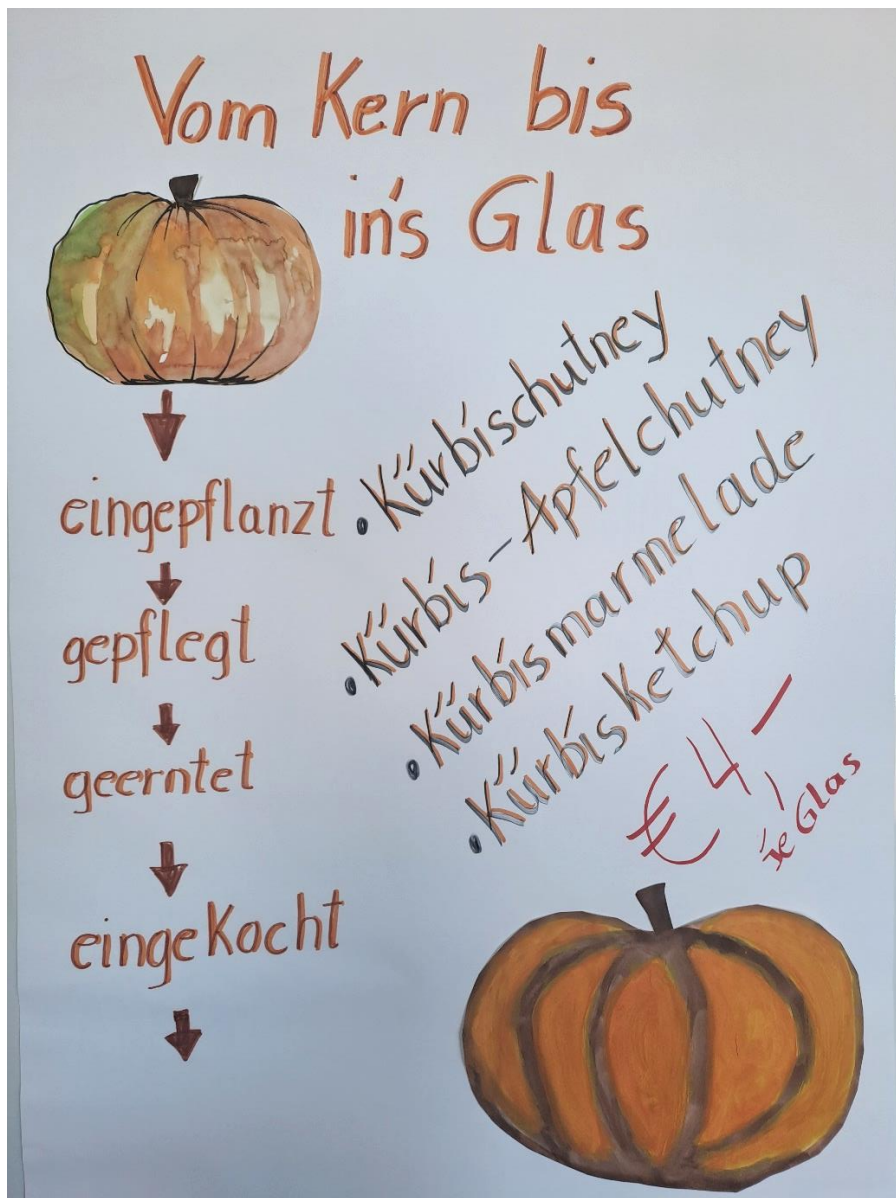 Vom Kern bis
in's Glas
eingepflanzt
gepflegt
geerntet
eingekocht
• Kürbischutney
• Kürbis-Apfelchutney
• Kürbismarmelade
• Kürbisketchup
€ 4,-
je Glas